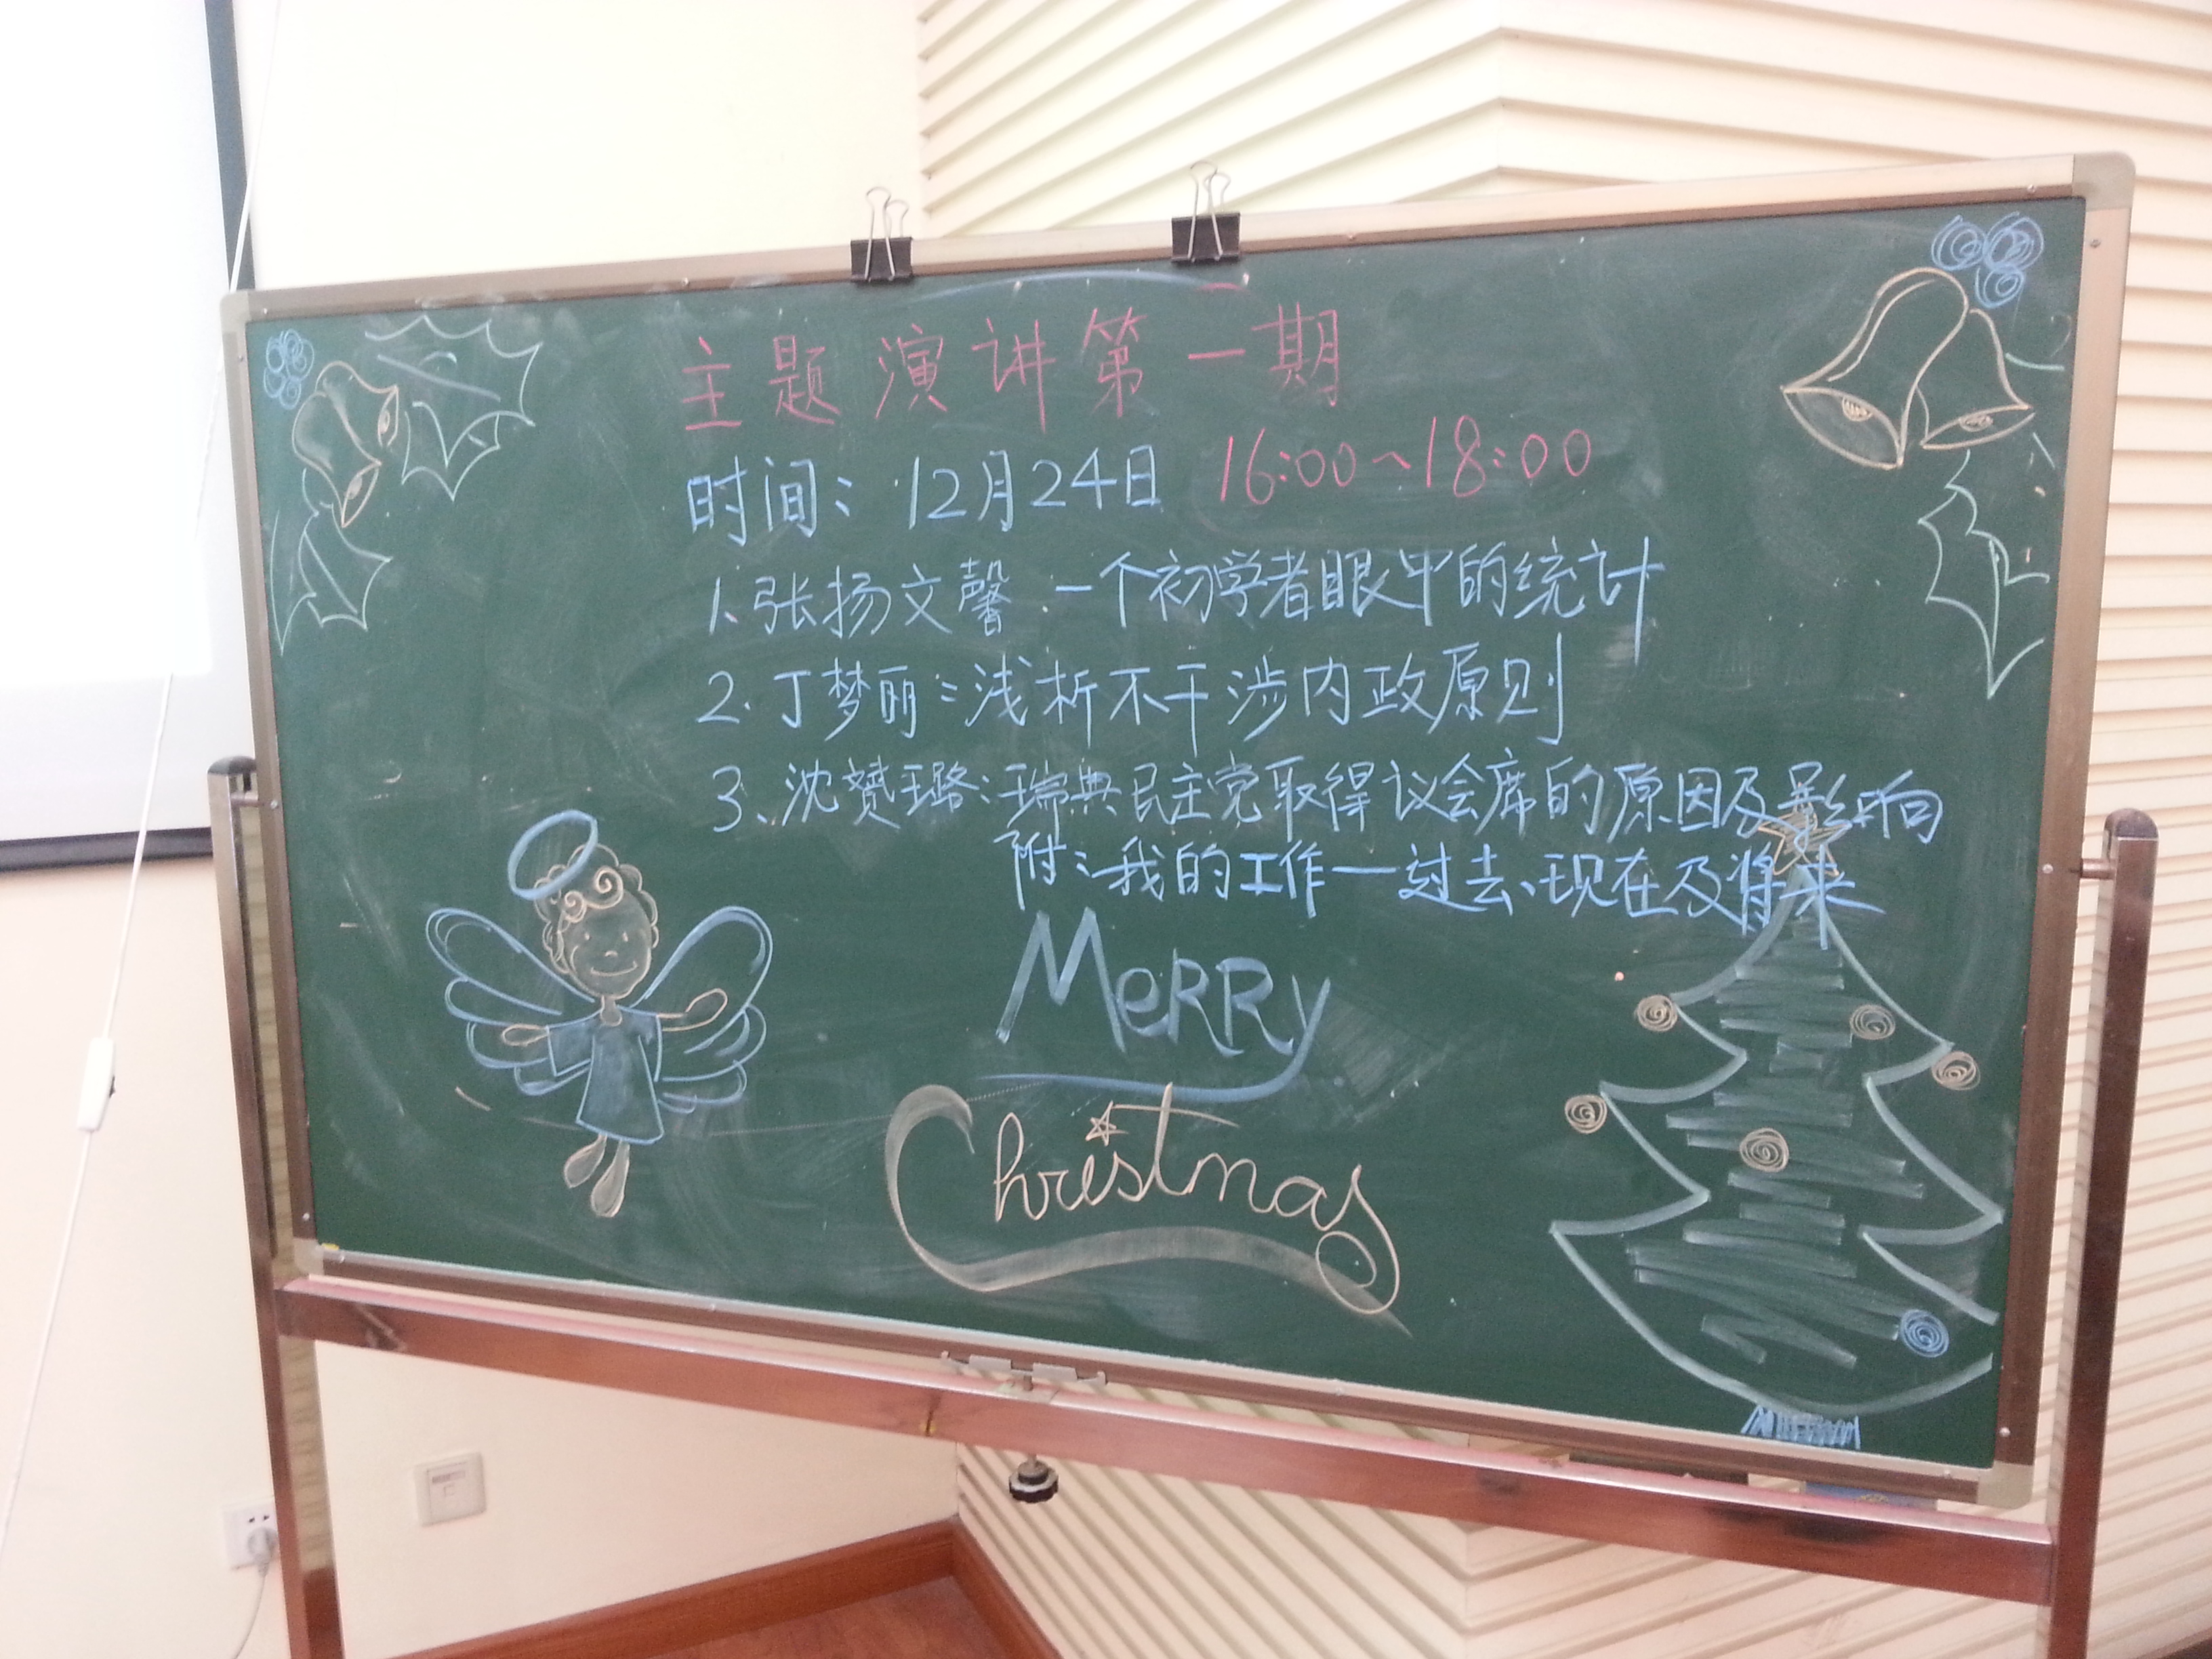 主题演讲第一期
时间：12月24日 16:00~18:00
1.张扬文馨 一个初学者眼中的统计
2.丁梦丽：浅析不干涉内政原则
3、沈赟璐：瑞典民主党取得议会席的原因及影响
附：我的工作—过去、现在及将来
MeRRy
Christmas